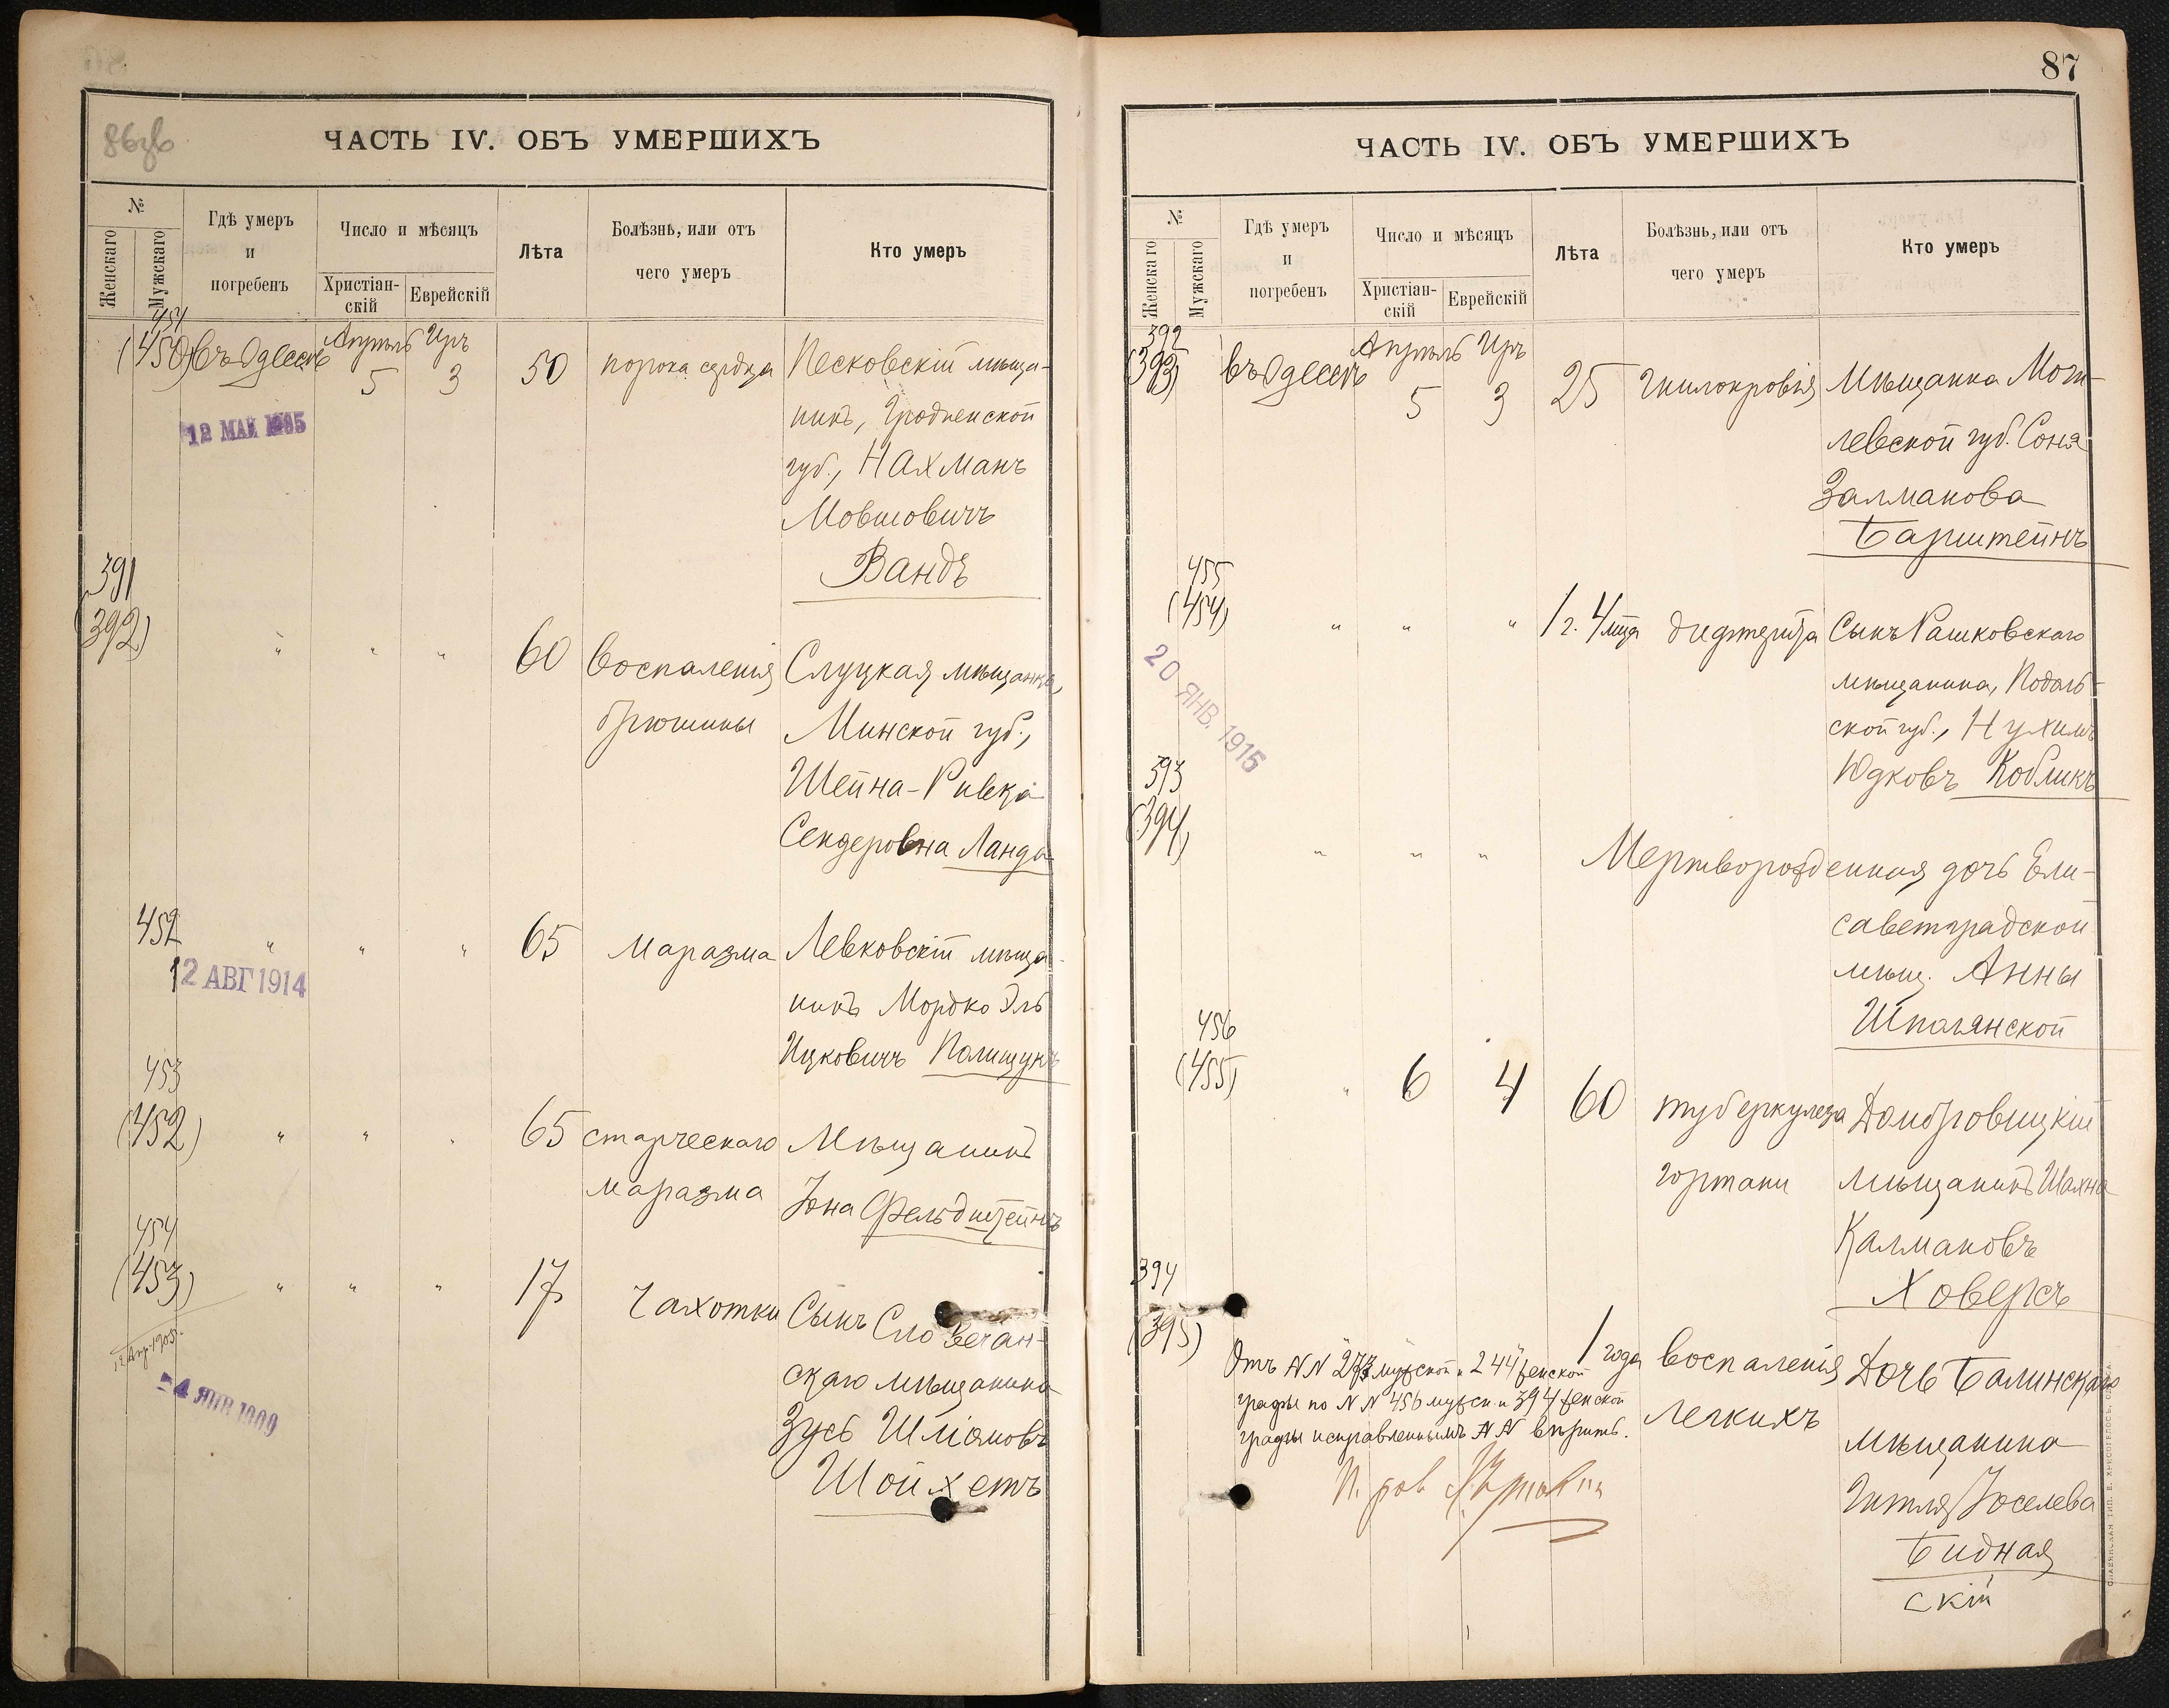 86об
ЧАСТЬ IV. ОБЪ УМЕРШИХЪ
№
Женскаго
Мужскаго
Гдѣ умеръ
и
погребенъ
Число и мѣсяцъ
Христіан-
скій
Еврейскій
Лѣта
Болѣзнь, или отъ
чего умеръ
Кто умеръ
451
(450) въ Одессѣ Апрѣль 5 Иръ 3 50 порока сердца Песковскій мѣща-
нинъ, Гродненской
губ., Нахманъ
Мовшовичъ
Вандъ
12 МАЙ
391
(392) " " " 60 воспаленія Слуцкая мѣщанка,
брюшины Минской губ.,
Шейна-Ривка
Сендеровна Ланда
452 " " " 65 маразма Левковскій мѣща-
нинъ Мордко Эль
Ицковичъ Полищукъ
12 АВГ 1914
453
(452) " " " 65 старческаго Мѣщанинъ
маразма Іона Фельдштейнъ
454
(453) " " " 17 чахотки Сынъ Словечан-
скаго мѣщанина
Зусь Шліомовъ
Шойхетъ
12 Апр. 1905 г.
-4 ЯНВ 1909
87
ЧАСТЬ IV. ОБЪ УМЕРШИХЪ
№
Женскаго
Мужскаго
Гдѣ умеръ
и
погребенъ
Число и мѣсяцъ
Христіан-
скій
Еврейскій
Лѣта
Болѣзнь, или отъ
чего умеръ
Кто умеръ
392
(393) въ Одессѣ Апрѣль 5 Иръ 3 25 гнилокровія Мѣщанка Моги-
левской губ. Соня
Залманова
Барштейнъ
455
(454) " " " 1 г. 4 мца дифтерита Сынъ Рашковскаго
мѣщанина, Подоль-
ской губ., Нухимъ
Юдковъ Кобликъ
20 ЯНВ. 1915
393
(394) " " " Мертворожденная дочь Ели-
саветградской
мѣщ. Анны
Шполянской
456
(455) " 6 4 60 туберкулеза Домбровицкій
гортани мѣщанинъ Шахна
Калмановъ
Ховерсъ
394
(395) 1 года воспаленія Дочь Балинскаго
легкихъ мѣщанина
Гитля Іоселева
Бидная
скій
Отъ NN 273 мужской и 244 женской
графы по NN 456 мужск. и 394 женской
графы исправленнымъ NN вѣрить.